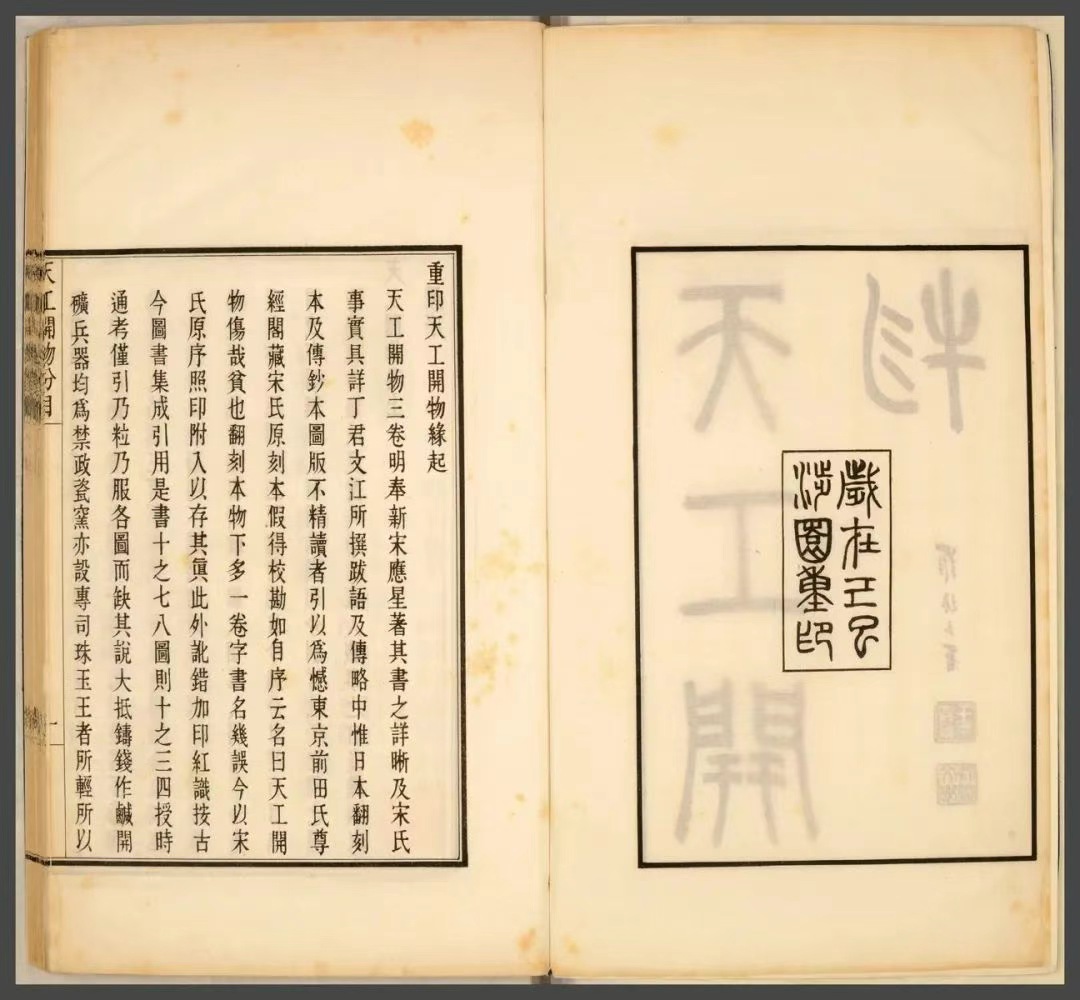 歲在己巳
涉園重印
重印天工開物緣起
天工開物三卷明奉新宋應星著其書之詳晰及宋氏
事實具詳丁君文江所撰跋語及傳略中惟日本翻刻
本及傳鈔本圖版不精讀者引以爲憾東京前田氏尊
經閣藏宋氏原刻本假得校勘如自序云名曰天工開
物傷哉貧也翻刻本物下多一卷字書名幾誤今以宋
氏原序照印附入以存其眞此外訛錯加印紅識按古
今圖書集成引用是書十之七八圖則十之三四授時
通考僅引乃粒乃服各圖而缺其說大抵鑄錢作鹹開
礦兵器均爲禁政瓷窯亦設專司珠玉王者所輕所以
天工開物分目
一